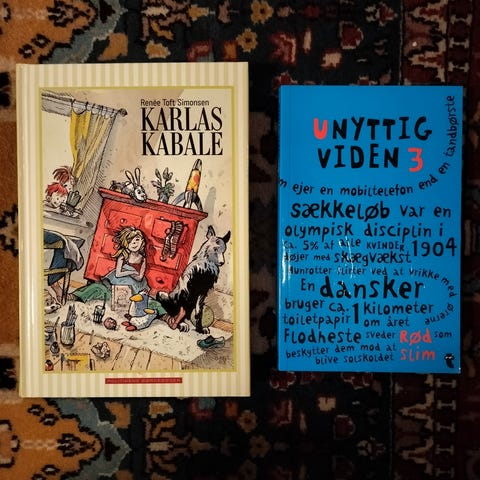 Renée Toft Simonsen
KARLAS
KABALE
POLITIKENS BØRNEBØGER
UNYTTIG
VIDEN 3
ejer en mobiltelefon end en tandbørste
sækkeløb var en
olympisk disciplin i
ca. 5% af alle kvinder 1904
døjer med skægvækst
Hunrotter flirter ved at vrikke med ørerne
En dansker
bruger ca. 1 kilometer
toiletpapir om året
Flodheste sveder RØD som
beskytter dem mod at SLIM
blive solskoldet